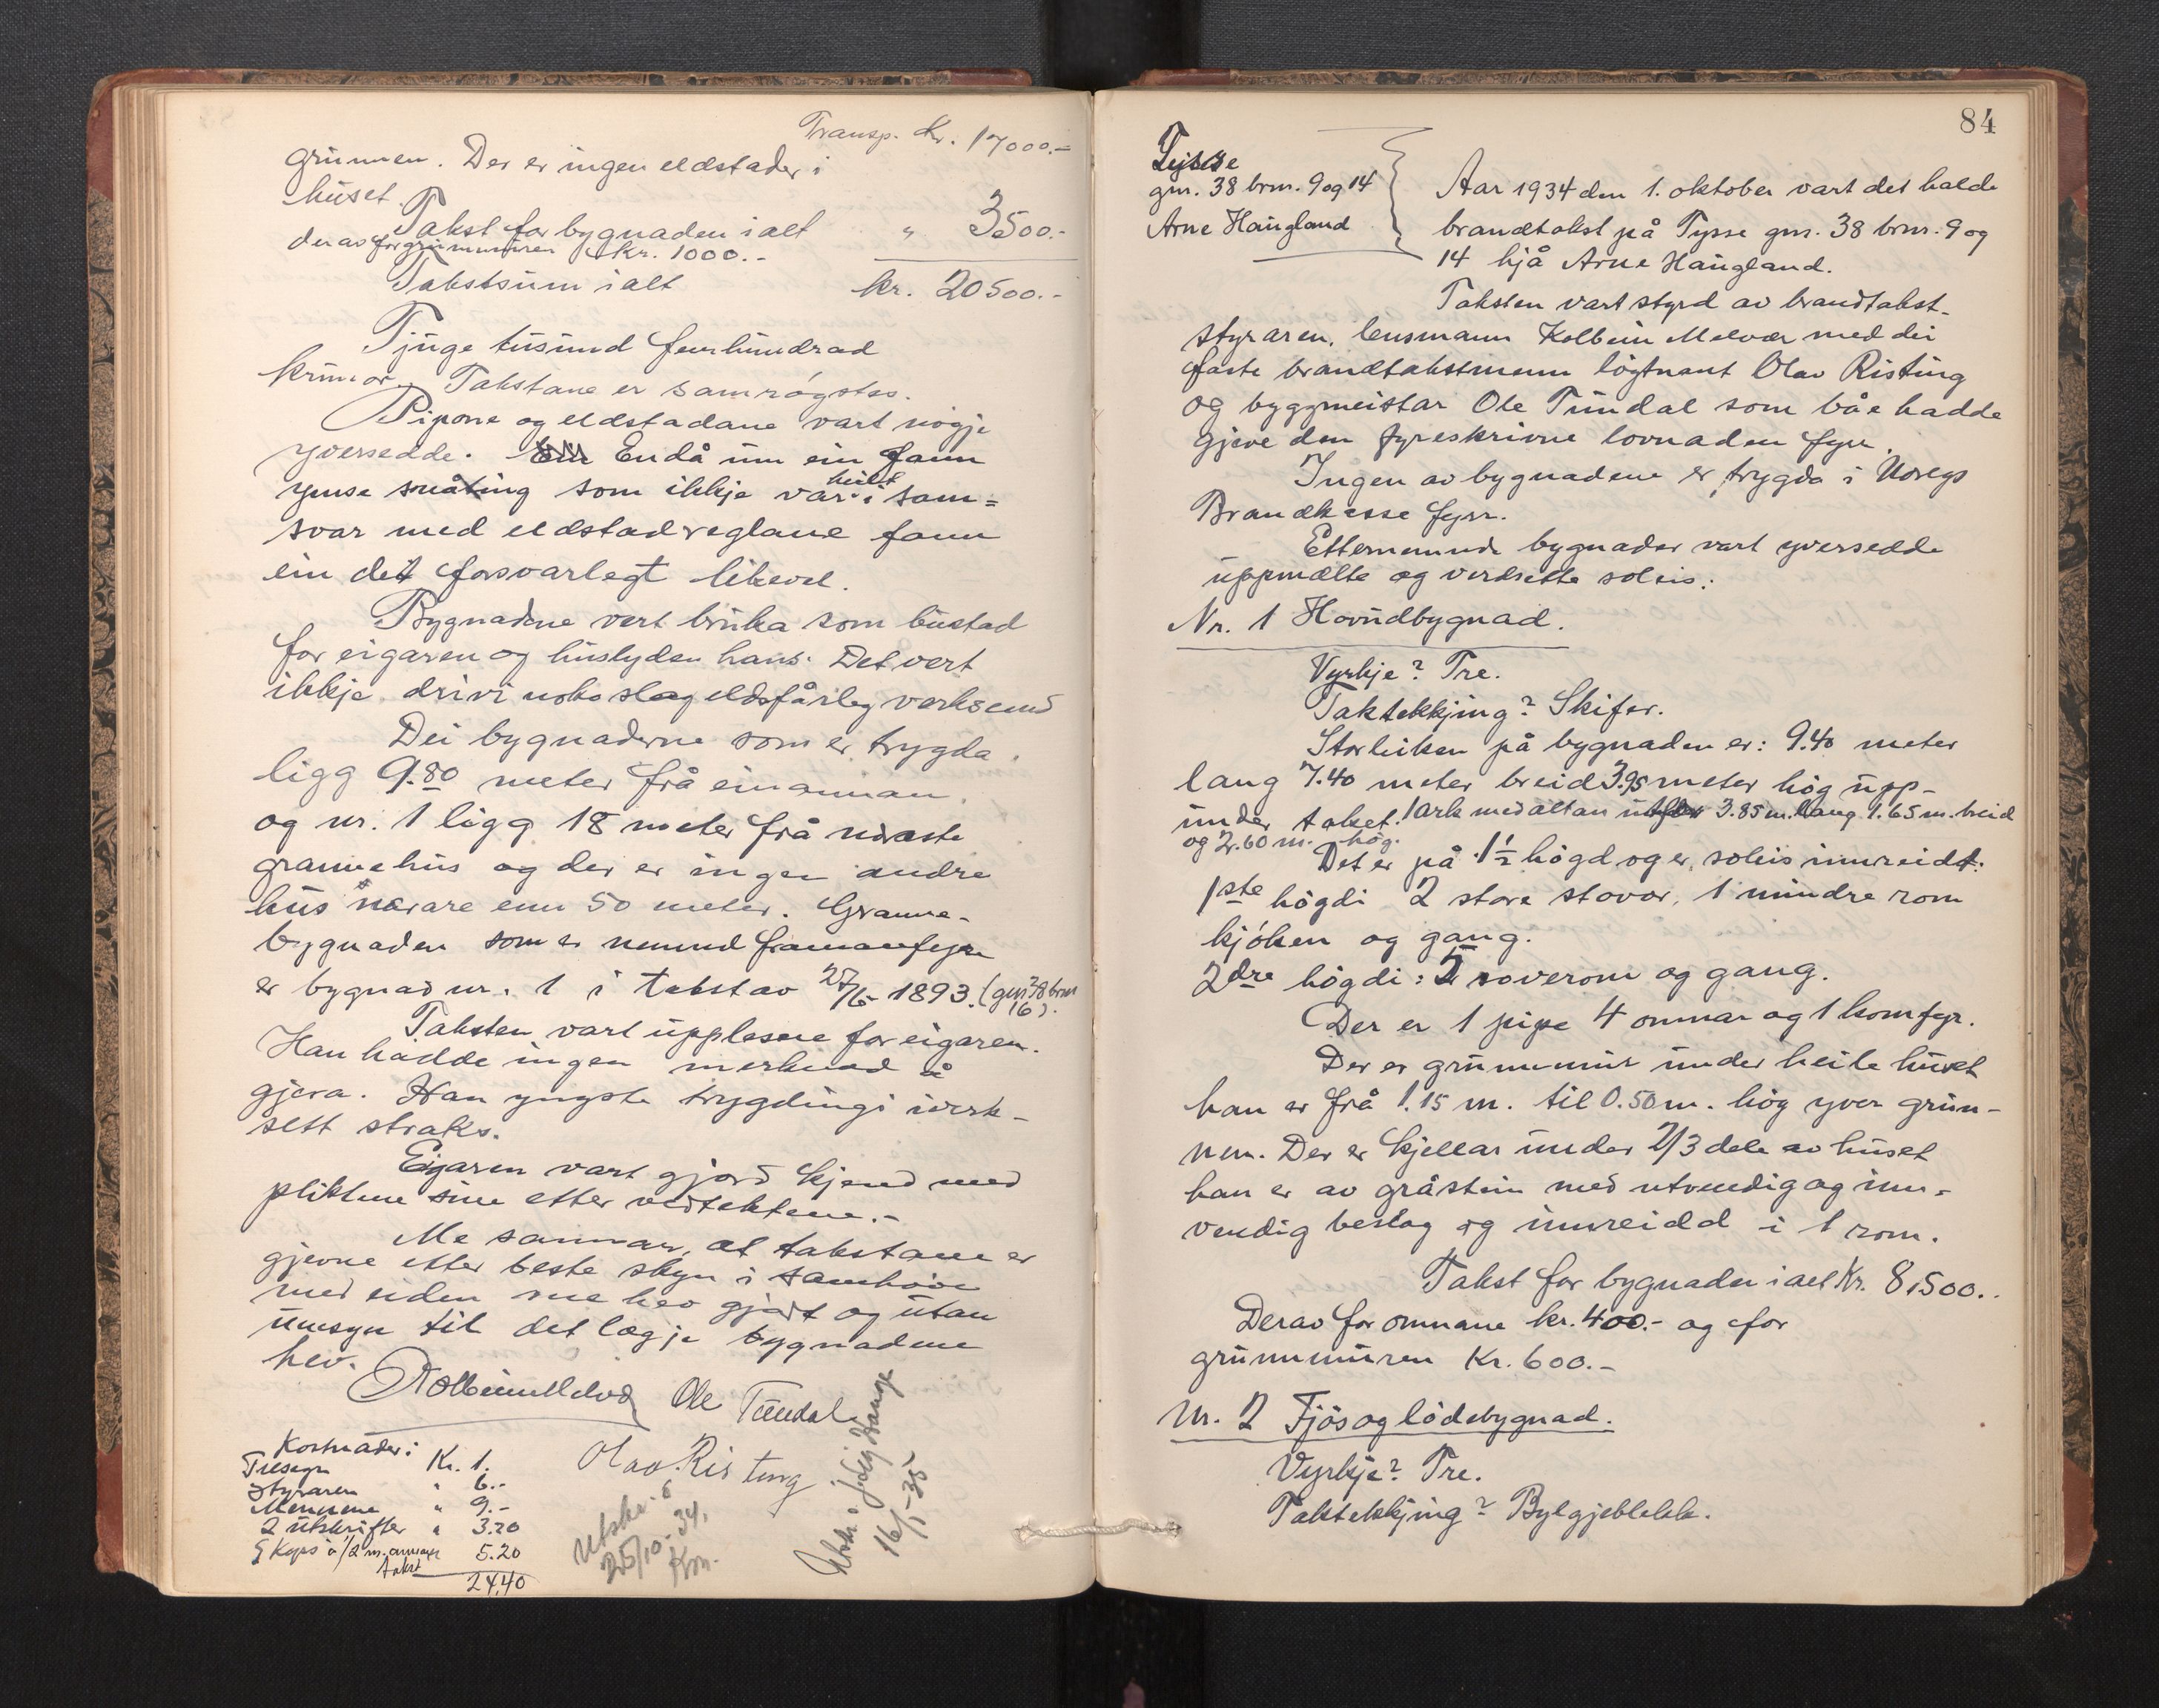 Transp. Kr. 17000.-
grunnen. Der er ingen eldstader i
huset.
Takst for bygnaden i alt " 3500.-
derav for grunnmuren kr. 1000.-
Takstsum i alt kr. 20500.-
Tjuge tusund femhundrad
krunor. Takstane er samrøystes.
Pipone og eldstadane vart nögje
yversedde. Endå um ein fann
ymse småting som ikkje var heilt i sam=
svar med eldstadreglane fann
ein det forsvarlegt likevel.
Bygnadene vert bruka som bustad
for eigaren og huslyden hans. Det vert
ikkje drivi noko slag eldsfårleg verksemd
Dei bygnaderne som er trygda
ligg 9.80 meter frå einannan
og nr. 1 ligg 18 meter frå næraste
grannehus og der er ingen andre
hus nærare enn 50 meter. Granne-
bygnaden som er nemnd framanfyre
er bygnad nr. 1 i takst av 27/6-1893. (gnr 38 brnr
16).
Taksten vart upplesne for eigaren.
Han hadde ingen merknad å
gjera. Han yngste trygdingi iverk-
sett straks.
Eigaren vart gjord kjend med
pliktene sine etter vedtektene.-
Me sannar, at takstane er
gjevne etter beste skyn i samhøve
med eiden me hev gjort og utan
umsyn til det lægje bygnadene
hev.
Kolbein Melvær Ole Tundal
Olav Risting
Kostnader:
Tilsegn Kr. 1.
Styraren " 6.-
Mennene " 9.-
2 utskrifter " 3.20
5.20
takst
24.40
Utskr.
25/10-34.
Km.
16/1-35
84
Tysse
gnr. 38 brnr. 9 og 14
Arne Haugland
Aar 1934 den 1. oktober vart det halde
brandtakst på Tysse gnr. 38 brnr. 9 og
14 hjå Arne Haugland.
Taksten vart styrd av brandtakst-
styraren, lensmann Kolbein Melvær med dei
faste brandtakstmenn løgtnant Olav Risting
og byggmeistar Ole Tundal som båe hadde
gjeve den fyreskrivne lovnaden fyrr.
Ingen av bygnadene er trygda i Noregs
Brandkasse fyrr.
Etternemnde bygnader vart yversedde
uppmælte og verdsette soleis:
Nr. 1 Hovudbygnad.
Vyrkje? Tre.
Taktekkjing? Skifer.
Storleiken på bygnaden er: 9.40 meter
lang 7.40 meter breid 3.95 meter høg upp-
under taket. 1 ark med altan 3.85 m. lang 1.65 m. breid
og 2.60 m. høg.
Det er på 1 1/2 högd og er soleis innreidt:
1ste högdi 2 store stovor, 1 mindre rom
kjöken og gang.
2dre högdi: 5 soverom og gang.
Der er 1 pipe 4 omnar og 1 komfyr.
Der er grunnmur under heile huset
han er frå 1.15 m. til 0.50 m. høg yver grun-
nen. Der er kjellar under 2/3 dele av huset
han er av gråstein med utvendig og inn-
vendig beslag og innreidd i 1 rom.
Takst for bygnaden i alt Kr. 8,500.-
Derav for omnane kr. 400.- og for
grunnmuren Kr. 600.-
Nr. 2 Fjös og lödebygnad.
Vyrkje? Tre.
Taktekkjing? Bylgjeblekk.